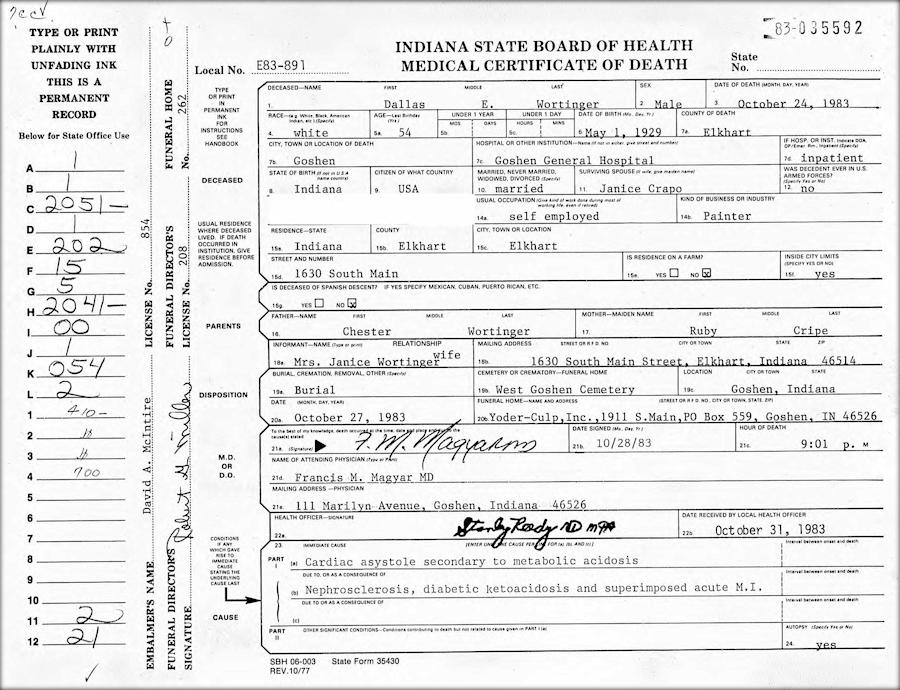 83-035592
TYPE OR PRINT
PLAINLY WITH
UNFADING INK
THIS IS A
PERMANENT
RECORD
Below for State Office Use
A 1
B 1
C 2051-
D 1
E 202
F 15
G 5
H 2041-
I 00
J 1
K 054
L 2
1 410-
2
3
4 700
5
6
7
8
9
10
11 2
12 21
EMBALMER'S NAME David A. McIntire LICENSE No. 854
FUNERAL DIRECTOR'S SIGNATURE Robert
FUNERAL DIRECTOR'S LICENSE No. 208
FUNERAL HOME No. 262
INDIANA STATE BOARD OF HEALTH
MEDICAL CERTIFICATE OF DEATH
Local No. E83-891
State No.
TYPE OR PRINT IN PERMANENT INK FOR INSTRUCTIONS SEE HANDBOOK
DECEASED—NAME FIRST MIDDLE LAST
1. Dallas E. Wortinger
SEX
2 Male
DATE OF DEATH (MONTH, DAY, YEAR)
3. October 24, 1983
RACE—(e.g. White, Black, American Indian, etc.) (Specify)
4. white
AGE—Last Birthday (Yrs.)
5a. 54
UNDER 1 YEAR
5b. MOS. DAYS
UNDER 1 DAY
5c. HOURS MINS
DATE OF BIRTH (Mo., Day, Yr.)
6 May 1, 1929
COUNTY OF DEATH
7a. Elkhart
CITY, TOWN OR LOCATION OF DEATH
7b. Goshen
HOSPITAL OR OTHER INSTITUTION—Name (If not in either, give street and number)
7c. Goshen General Hospital
IF HOSP. OR INST. Indicate DOA, OP/Emer. Rm., Inpatient (Specify)
7d. inpatient
DECEASED
STATE OF BIRTH (If not in U.S.A. name country)
8. Indiana
CITIZEN OF WHAT COUNTRY
9. USA
MARRIED, NEVER MARRIED, WIDOWED, DIVORCED (Specify)
10. married
SURVIVING SPOUSE (If wife, give maiden name)
11. Janice Crapo
WAS DECEDENT EVER IN U.S. ARMED FORCES? (Specify Yes or No)
12. no
USUAL OCCUPATION (Give kind of work done during most of working life, even if retired)
14a. self employed
KIND OF BUSINESS OR INDUSTRY
14b. Painter
USUAL RESIDENCE WHERE DECEASED LIVED. IF DEATH OCCURRED IN INSTITUTION, GIVE RESIDENCE BEFORE ADMISSION.
RESIDENCE—STATE
15a. Indiana
COUNTY
15b. Elkhart
CITY, TOWN OR LOCATION
15c. Elkhart
STREET AND NUMBER
15d. 1630 South Main
IS RESIDENCE ON A FARM?
15e. YES NO X
INSIDE CITY LIMITS (SPECIFY YES OR NO)
15f. yes
IS DECEASED OF SPANISH DESCENT? IF YES SPECIFY MEXICAN, CUBAN, PUERTO RICAN, ETC.
15g. YES NO X
PARENTS
FATHER—NAME FIRST MIDDLE LAST
16. Chester Wortinger
MOTHER—MAIDEN NAME FIRST MIDDLE LAST
17. Ruby Cripe
INFORMANT—NAME (Type or print) RELATIONSHIP
18a. Mrs. Janice Wortinger wife
MAILING ADDRESS STREET OR R.F.D. NO. CITY OR TOWN STATE ZIP
18b. 1630 South Main Street, Elkhart, Indiana 46514
DISPOSITION
BURIAL, CREMATION, REMOVAL, OTHER (Specify)
19a. Burial
CEMETERY OR CREMATORY—FUNERAL HOME
19b. West Goshen Cemetery
LOCATION CITY OR TOWN STATE
19c. Goshen, Indiana
DATE (MONTH, DAY, YEAR)
20a. October 27, 1983
FUNERAL HOME—NAME AND ADDRESS (STREET OR R.F.D. NO., CITY OR TOWN, STATE, ZIP)
20b. Yoder-Culp,Inc.,1911 S.Main,PO Box 559, Goshen, IN 46526
M.D. OR D.O.
To the best of my knowledge, death occurred at the time, date and place and due to the cause(s) stated
21a. (Signature) F. M. Magyar
DATE SIGNED (Mo., Day, Yr.)
21b. 10/28/83
HOUR OF DEATH
21c. 9:01 p. M
NAME OF ATTENDING PHYSICIAN (Type or Print)
21d. Francis M. Magyar MD
MAILING ADDRESS—PHYSICIAN
21e. 111 Marilyn Avenue, Goshen, Indiana 46526
HEALTH OFFICER—SIGNATURE
22a.
DATE RECEIVED BY LOCAL HEALTH OFFICER
22b. October 31, 1983
CONDITIONS IF ANY WHICH GAVE RISE TO IMMEDIATE CAUSE STATING THE UNDERLYING CAUSE LAST
CAUSE
23. IMMEDIATE CAUSE [ENTER ONLY ONE CAUSE PER LINE FOR (a), (b), AND (c)] Interval between onset and death
PART I (a) Cardiac asystole secondary to metabolic acidosis
DUE TO, OR AS A CONSEQUENCE OF Interval between onset and death
(b) Nephrosclerosis, diabetic ketoacidosis and superimposed acute M.I.
DUE TO OR AS A CONSEQUENCE OF Interval between onset and death
(c)
PART II OTHER SIGNIFICANT CONDITIONS—Conditions contributing to death but not related to cause given in PART I (a)
AUTOPSY (Specify Yes or No)
24. yes
SBH 06-003 State Form 35430
REV.10/77